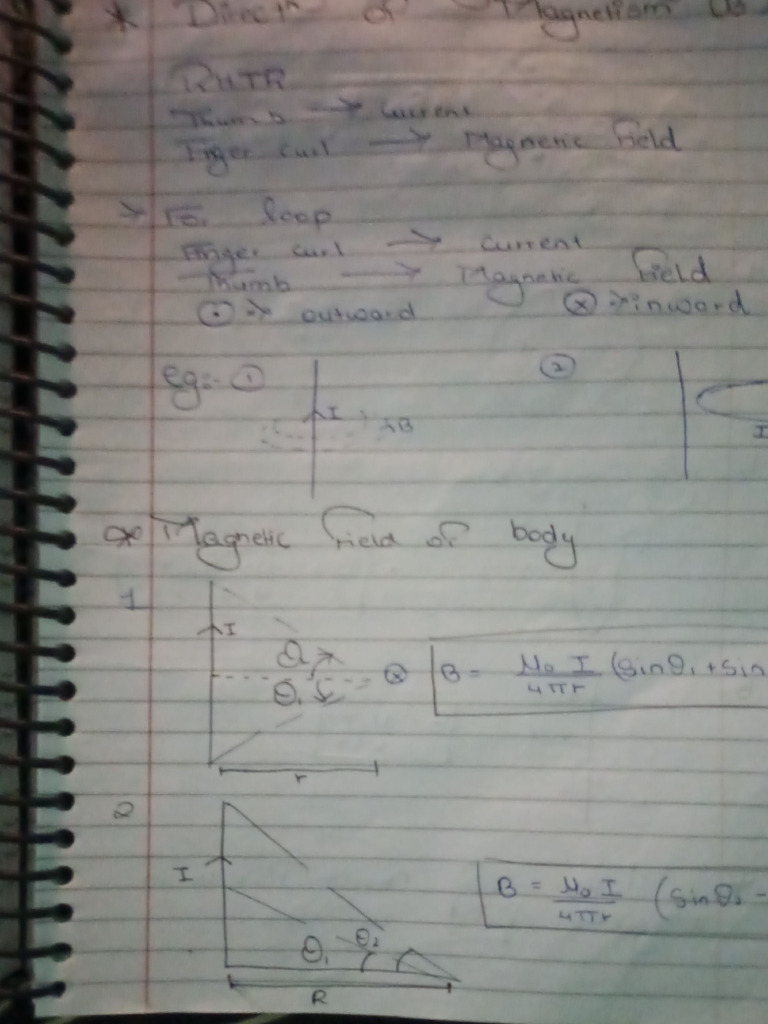 * Directn of Magnetism
RHTR
Thumb → Current
Finger curl → Magnetic Field
→ For loop
Finger curl → current
Thumb → Magnetic Field
⊙ → outward ⊗ → inword
eg:- ① ②
I
B
I
* Magnetic Field of body
1
I
θ
⊗ B = μ₀ I / 4πr (Sinθ₁ + Sin
θ₁
r
2
I
B = μ₀ I / 4πr (Sinθ₂ -
θ₁ θ₂
R